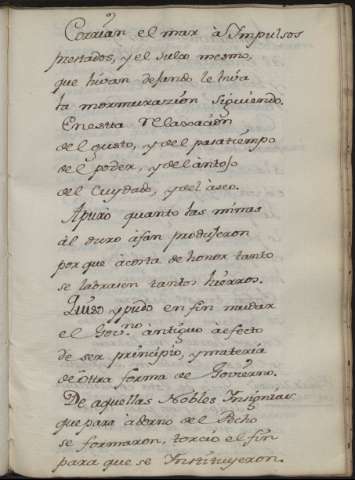 Corrian el mar à Impulsos
prestados, y el sulco mesmo,
que hivan dejando le hiva
la mormurazion siguiendo.
En esta relaxacion
de el gusto, y de el pasatiempo
de el poder, y de el antojo
de el Cuydado, y de el aseo.
Apurò quanto las minas
àl duro àfan produjeron
por que àcosta de honor tanto
se labrasen tantos hierros.
Quiso y pudo en fin mudar
el Gov.no àntiguo àfecto
de ser principio, y materia
de òtra forma de Govierno.
De aquellas Nobles Insignias
que para àdorno de el Pecho
se formaron, torciò el fin
para que se Instituyeron.